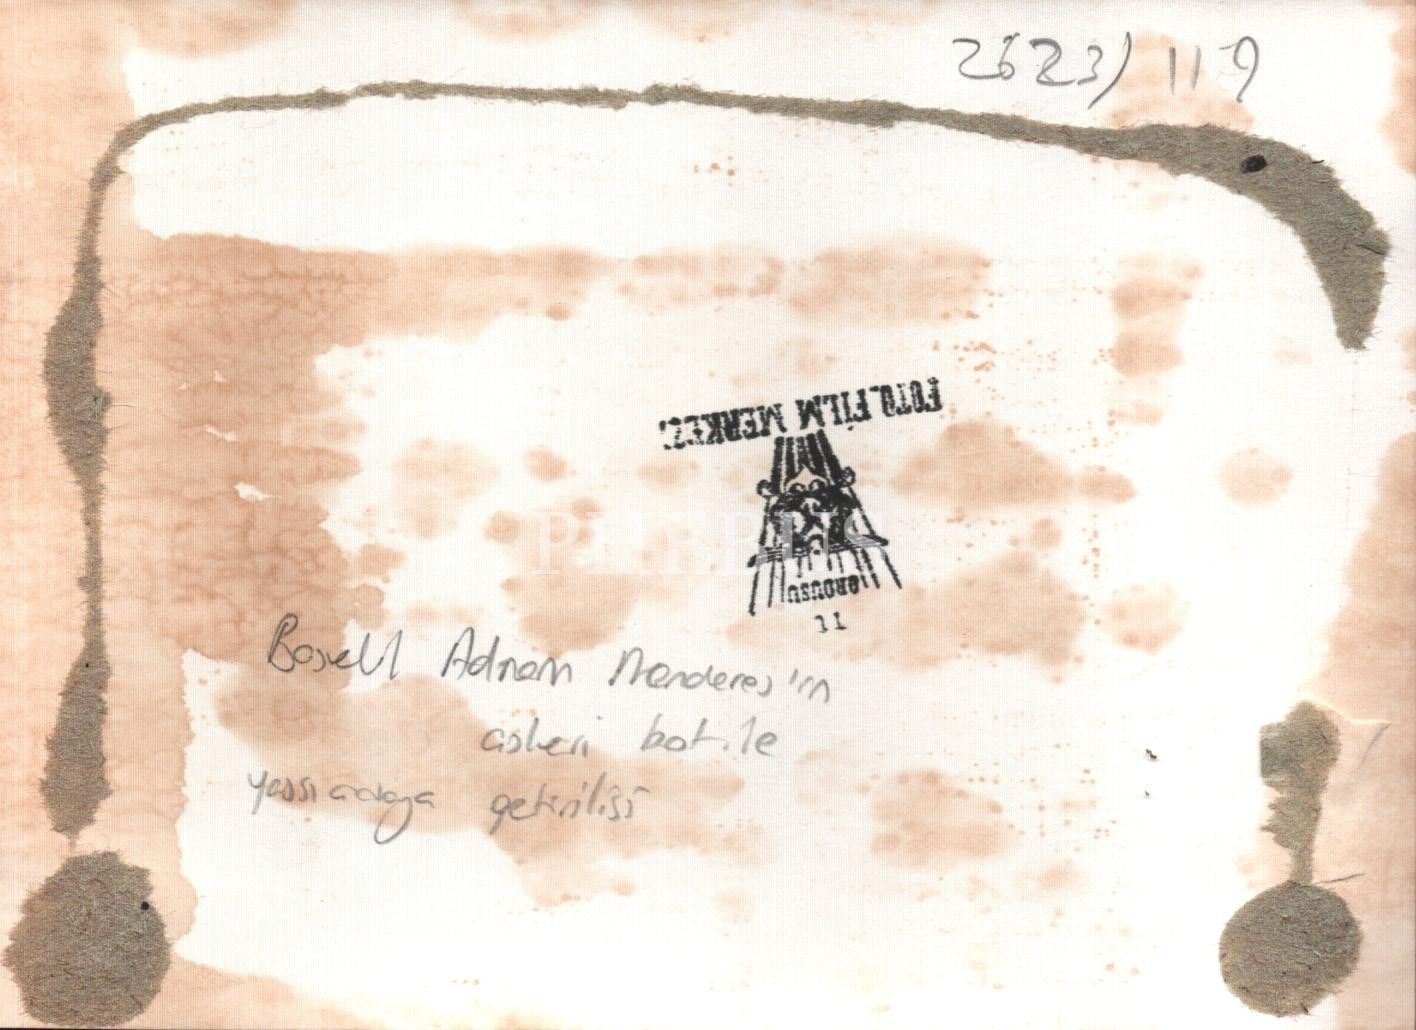 2623/119
FOTO_FİLM MERKEZİ
ORDUSU
11
PHEBUS
Başvekil Adnan Menderes'in
askeri bot ile
yassıadaya getirilişi